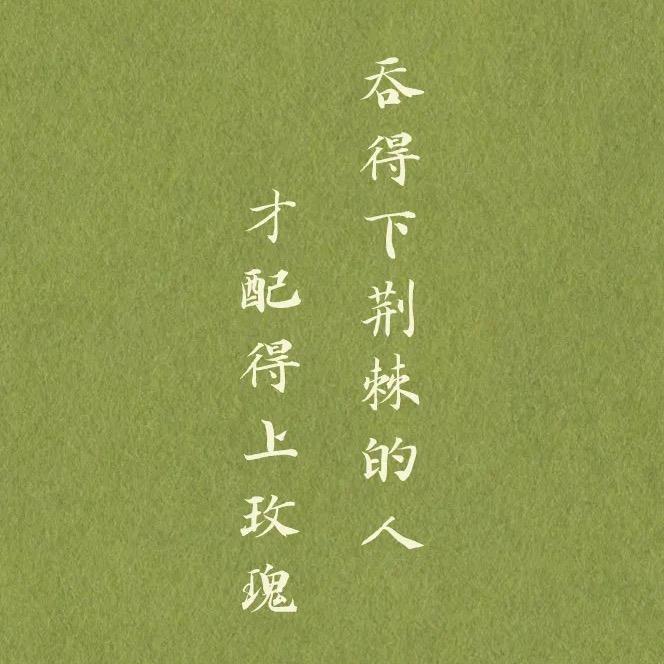 吞得下荆棘的人
才配得上玫瑰